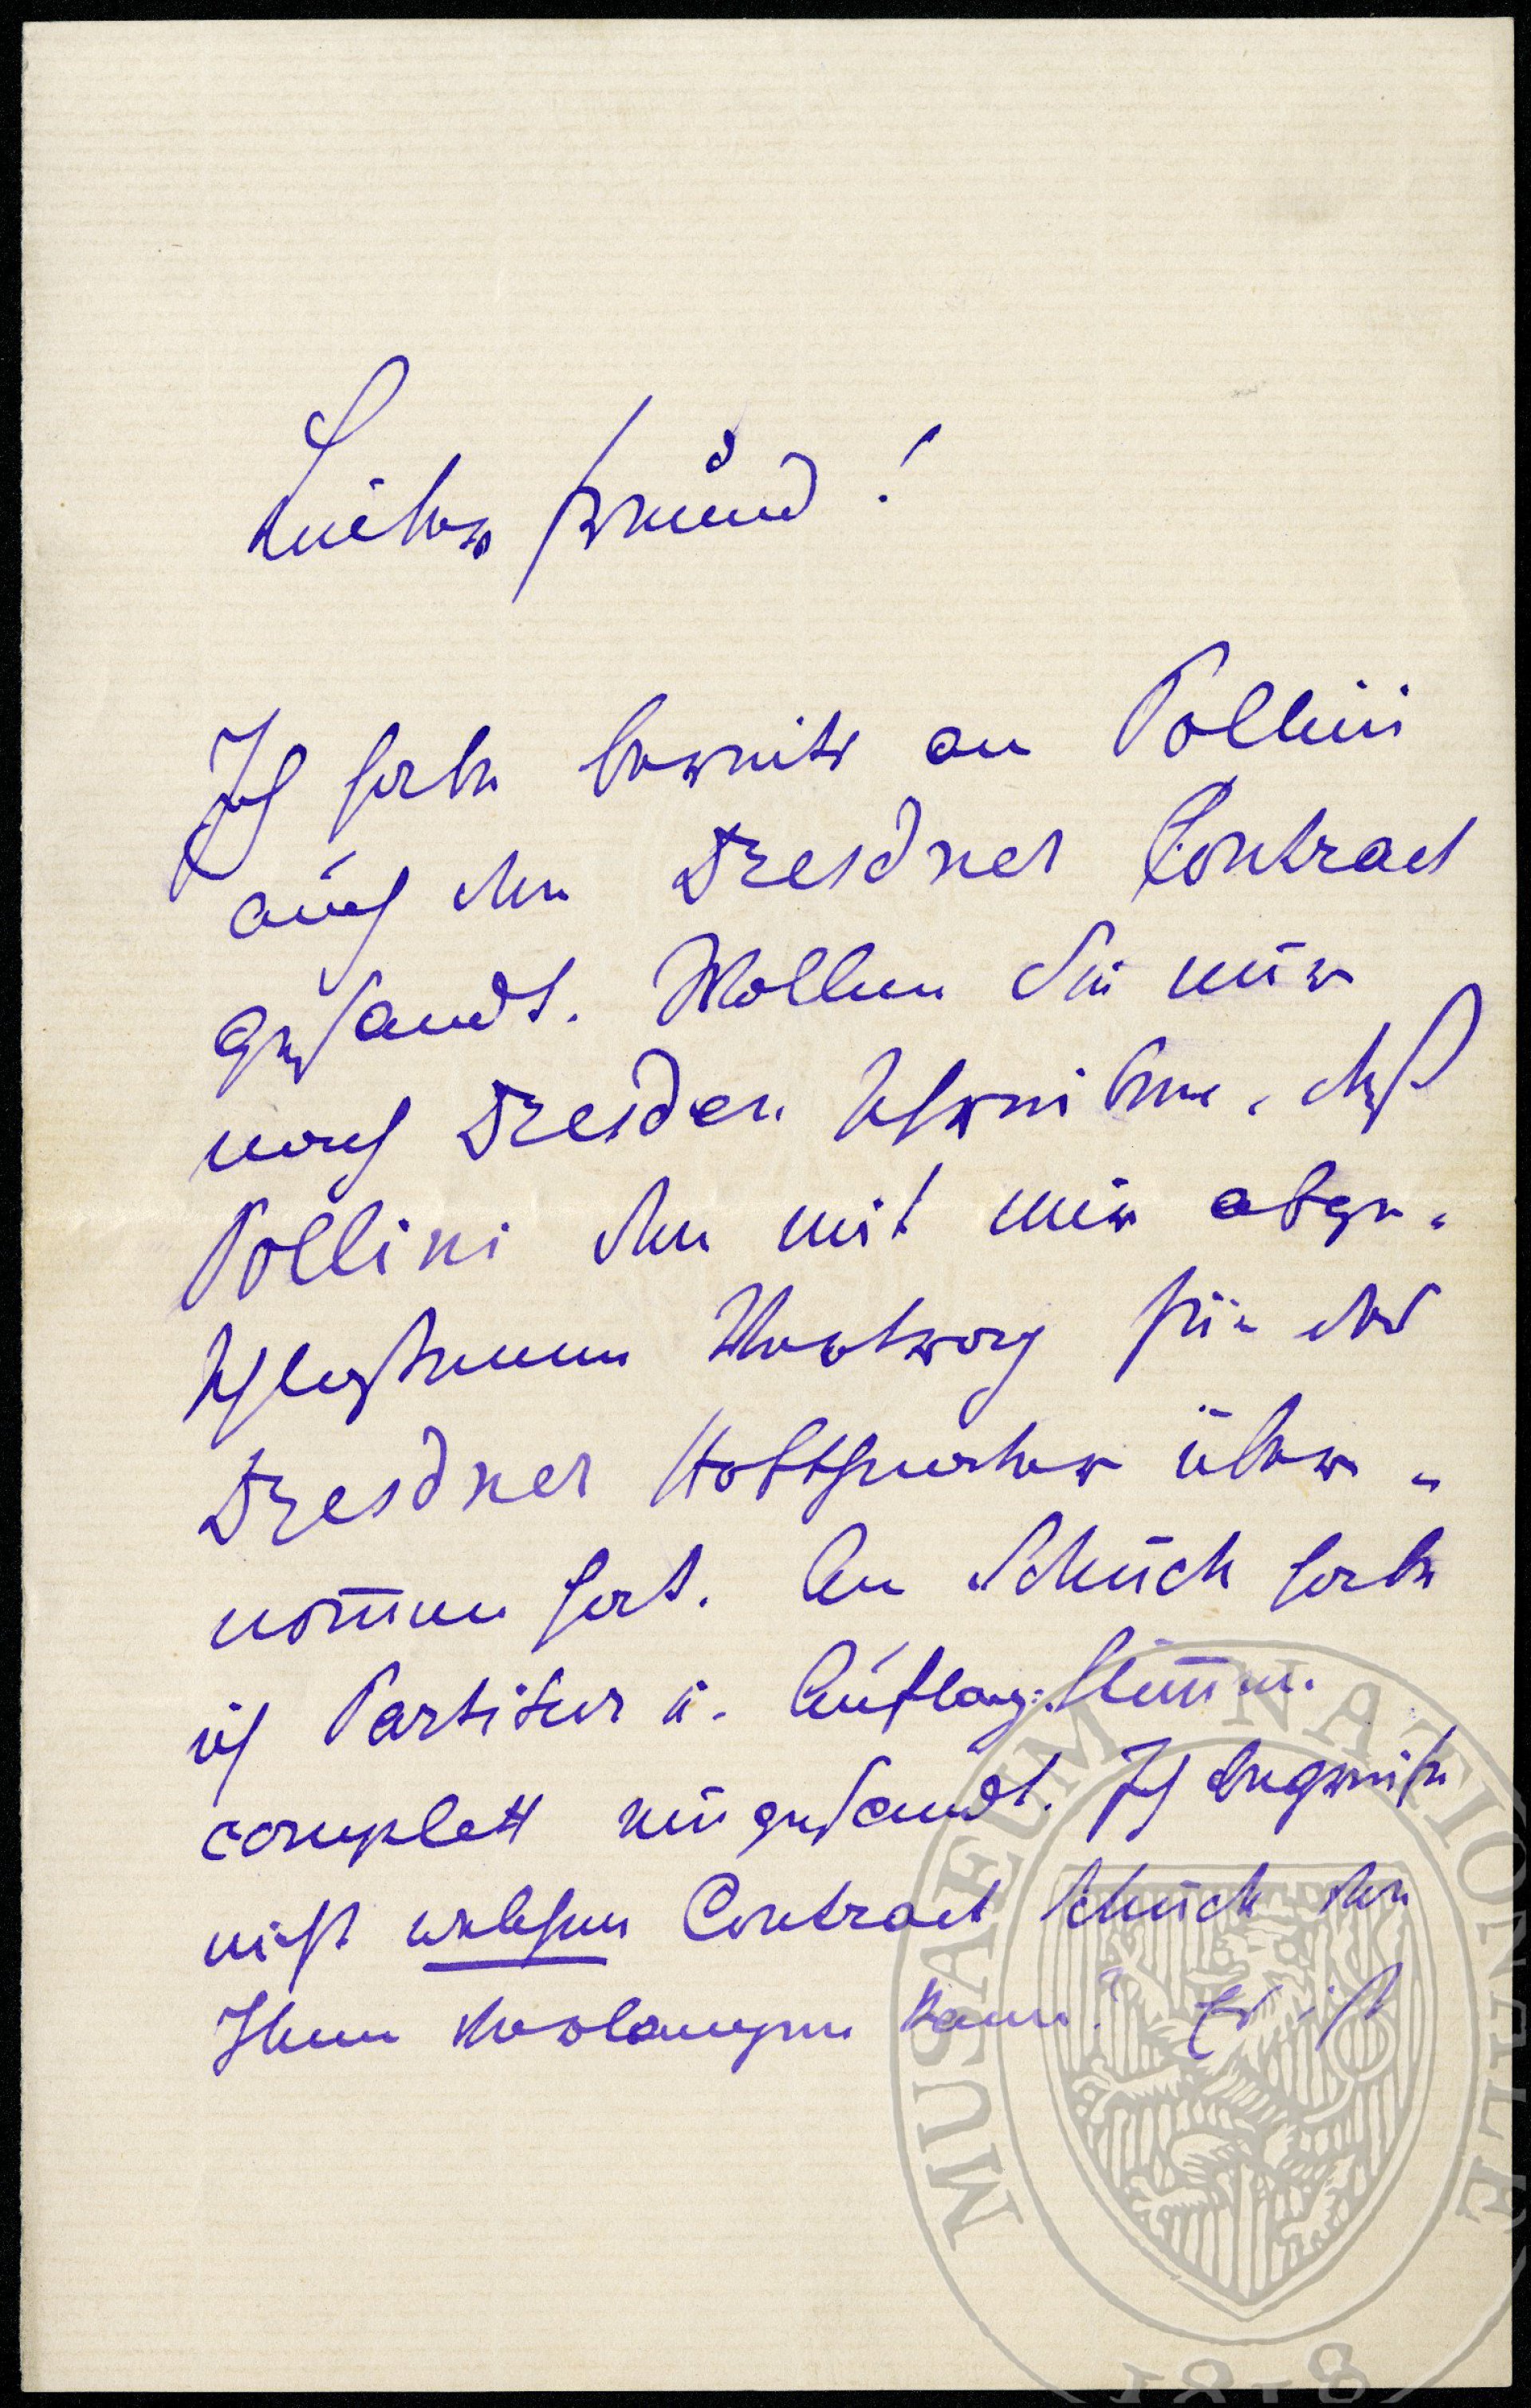 Lieber Freund!
Ich habe bereits an Pollini
auch den Dresdner Contract
gesandt. Wollen Sie nur
nach Dresden schreiben, daß
Pollini den mit mir abge-
schlossenen Vertrag für das
Dresdner Hoftheater über-
nom̅en hat. An Schuch habe
ich Partitur u. Auflag: Stim̅en
complett eingesandt. Ich begreife
nicht welchen Contract Schuch von
Ihnen verlangen kann? Es ist
MUSAEUM NATIONALE
1818